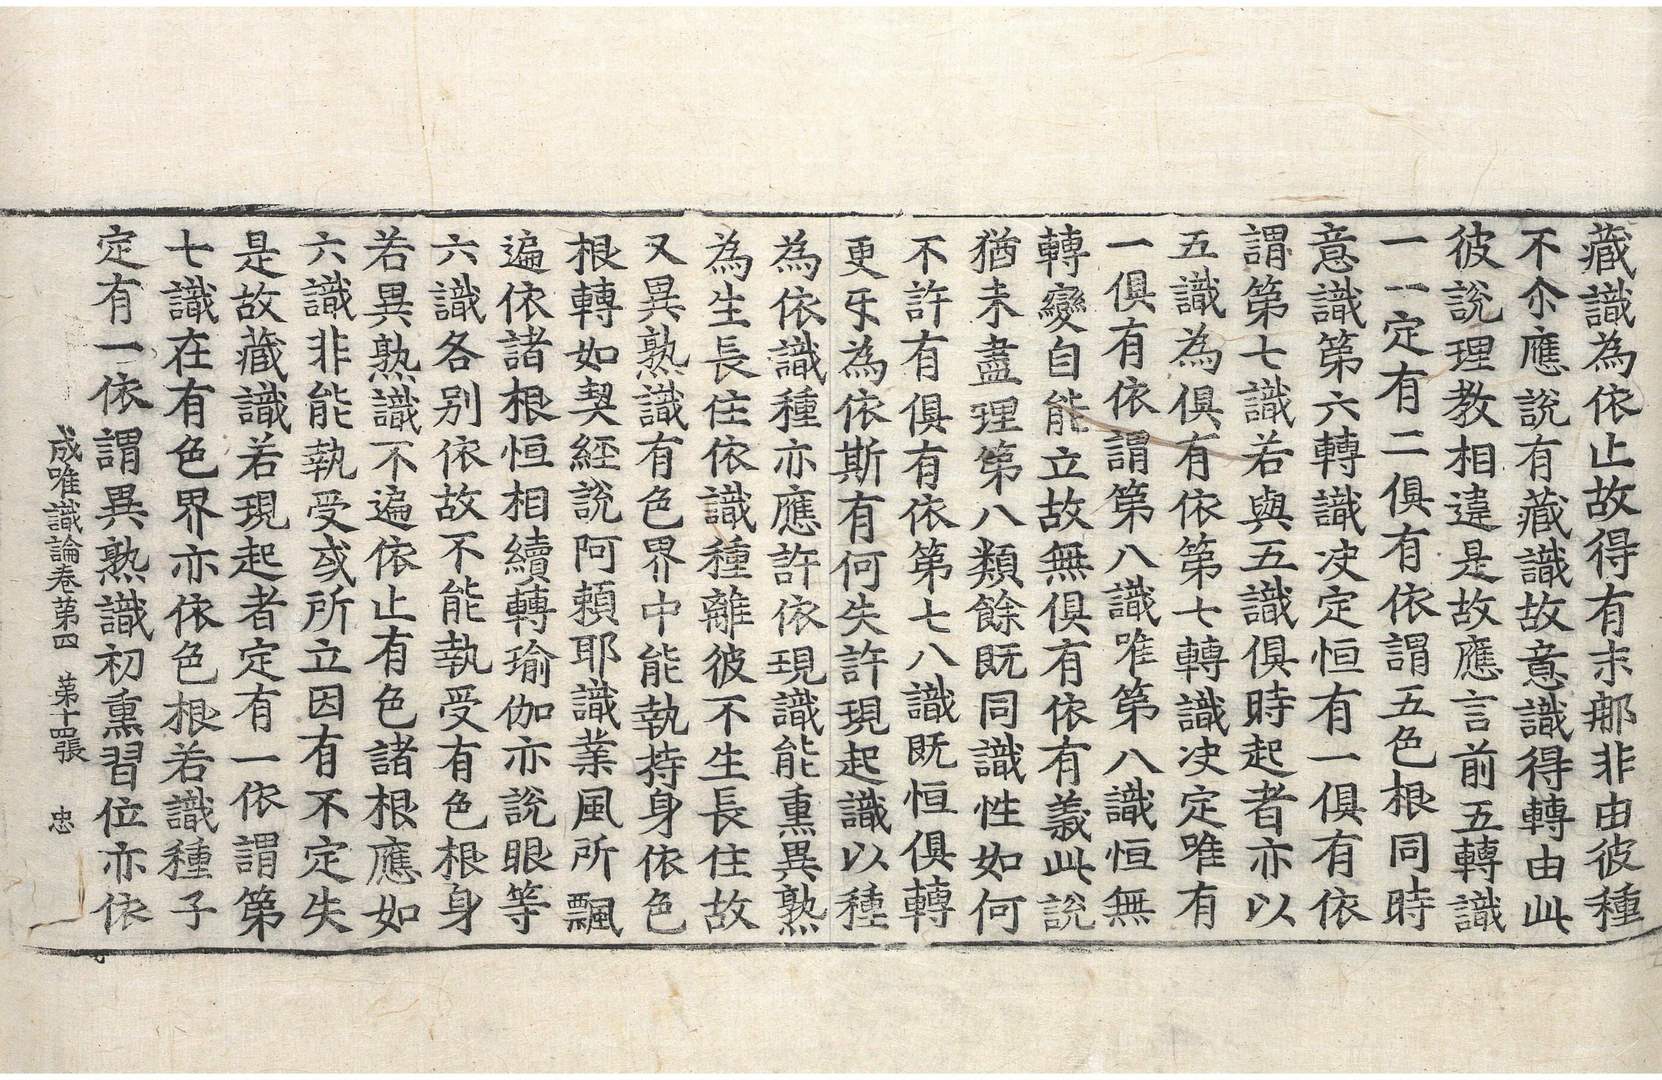 藏識為依止故得有末那非由彼種
不尒應說有藏識故意識得轉由此
彼說理教相違是故應言前五轉識
一一定有二俱有依謂五色根同時
意識第六轉識决定恒有一俱有依
謂第七識若與五識俱時起者亦以
五識為俱有依第七轉識决定唯有
一俱有依謂第八識唯第八識恒無
轉變自能立故無俱有依有義此說
猶未盡理第八類餘既同識性如何
不許有俱有依第七八識既恒俱轉
更㸦為依斯有何失許現起識以種
為依識種亦應許依現識能熏異熟
為生長住依識種離彼不生長住故
又異熟識有色界中能執持身依色
根轉如契經說阿賴耶識業風所飄
遍依諸根恒相續轉瑜伽亦說眼等
六識各別依故不能執受有色根身
若異熟識不遍依止有色諸根應如
六識非能執受或所立因有不定失
是故藏識若現起者定有一依謂第
七識在有色界亦依色根若識種子
定有一依謂異熟識初熏習位亦依
成唯識論卷第四 第十四張 忠